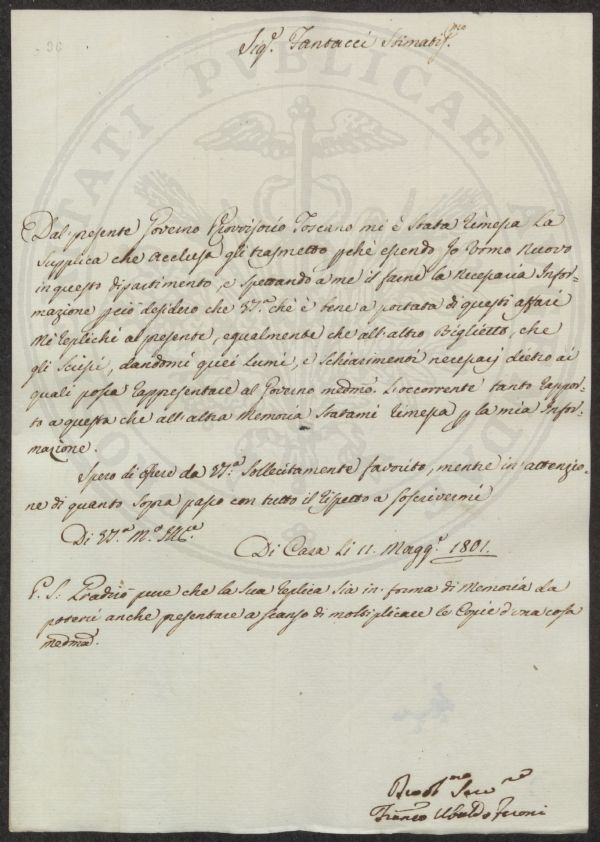 Sig.r Fantacci Stimatis.mo
Dal presente Governo Provvisorio Toscano mi è stata rimessa la
supplica che acclusa gli trasmetto p.chè essendo Io Uomo nuovo
in questo dipartimento, e spettando a me il farne la necessaria Infor-
mazione p.ciò desidero che V.S. che è bene a portata di questi affari
mi replichi al presente, egualmente che all'altro Biglietto, che
gli scrissi, dandomi quei lumi, e schiarimenti necessarj dietro ai
quali possa rappresentare al Governo med.mo l'occorrente tanto rappor-
to a questa che all'altra Memoria statami rimessa p. la mia Infor-
mazione.
Spero di essere da V.S. sollecitamente favorito, mentre in attenzio-
ne di quanto sopra passo con tutto il rispetto a soscrivermi
Di V.S. M.o Ill.e
Di Casa Li 11. Magg.o 1801.
P.S: Gradirò pure che la sua replica sia in forma di Memoria da
potersi anche presentare a scanso di moltiplicare le Copie d'una cosa
med.ma
Franco Ubaldo Feroni
TATI PUBLICAE